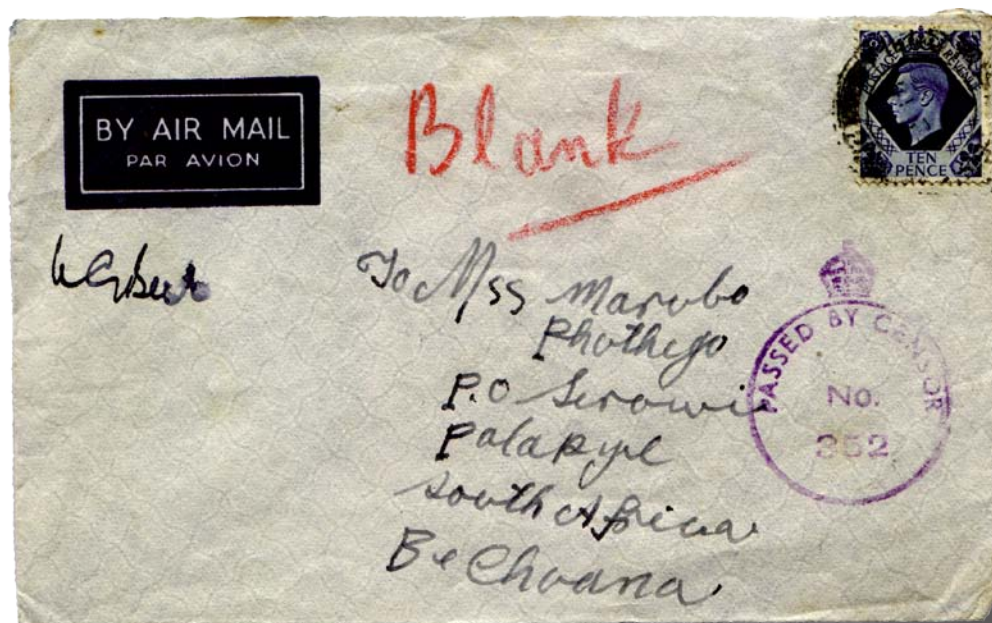 BY AIR MAIL
PAR AVION
Blank
POSTAGE REVENUE
TEN
PENCE
To Mss Marubo
Phothego
P.O Serowi
Palapye
South Africa
BeChoana
PASSED BY CENSOR
No.
352